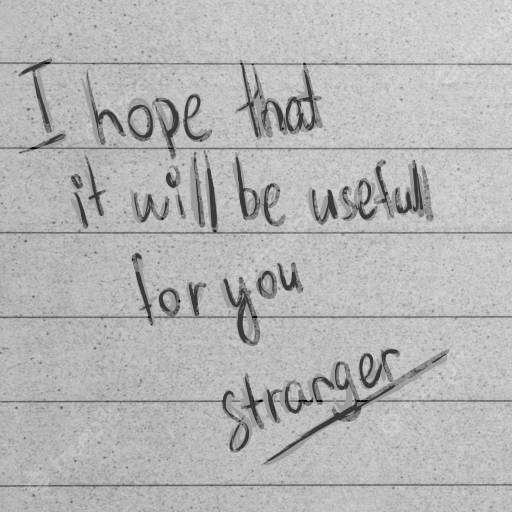 I hope that
it will be usefull
for you
stranger